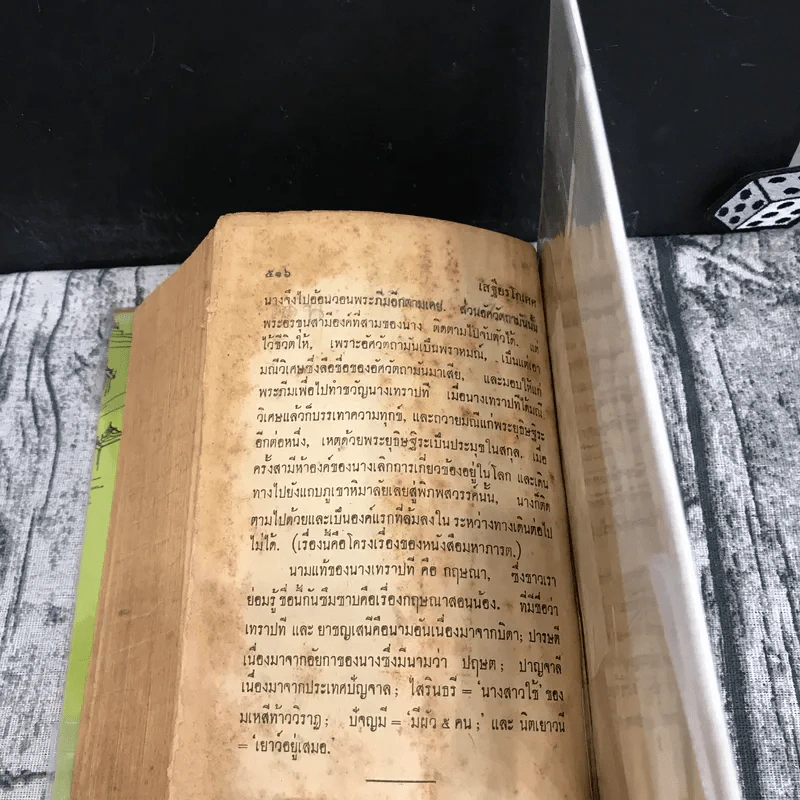 ๕๑๖
เสฐียรโกเศศ
นางจึงไปอ้อนวอนพระภีมอีกตามเคย. ส่วนอัศวัตถามันนั้น
พระอรชุนสามีองค์ที่สามของนาง ติดตามไปจับตัวได้. แต่
ไว้ชีวิตให้, เพราะอัศวัตถามันเป็นพราหมณ์, เป็นแต่เอา
มณีวิเศษซึ่งลือชื่อของอัศวัตถามันมาเสีย, และมอบให้แก่
พระภีมเพื่อไปทำขวัญนางเทราปที เมื่อนางเทราปทีได้มณี
วิเศษแล้วก็บรรเทาความทุกข์, และถวายมณีแก่พระยุธิษฐิระ
อีกต่อหนึ่ง, เหตุด้วยพระยุธิษฐิระเป็นประมุขในสกุล. เมื่อ
ครั้งสามีห้าองค์ของนางเลิกการเกี่ยวข้องอยู่ในโลก และเดิน
ทางไปยังแถบภูเขาหิมาลัยเลยสู่พิภพสวรรค์นั้น, นางก็ติด
ตามไปด้วยและเป็นองค์แรกที่ล้มลงใน ระหว่างทางเดินต่อไป
ไม่ได้. (เรื่องนี้คือโครงเรื่องของหนังสือมหาภารต.)
นามแท้ของนางเทราปที คือ กฤษณา, ซึ่งชาวเรา
ย่อมรู้ชื่อนี้กันซึมซาบคือเรื่องกฤษณาสอนน้อง. ที่มีชื่อว่า
เทราปที และ ยาชญเสนีคือนามอันเนื่องมาจากบิดา; ปารษตี
เนื่องมาจากอัยกาของนางซึ่งมีนามว่า ปฤษต; ปาญจาลี
เนื่องมาจากประเทศปัญจาล; ไสรินธรี = 'นางสาวใช้' ของ
มเหสีท้าววิราฏ; ปัจญมี = 'มีผัว ๕ คน;' และ นิตเยาวนี
= 'เยาว์อยู่เสมอ.'